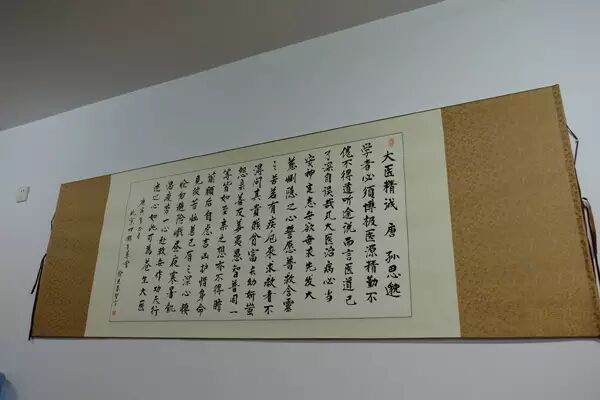 大医精诚 唐 孙思邈
学者必须博极医源精勤不
倦不得道听途说而言医道已
了深自误哉凡大医治病必当
安神定志无欲无求先发大
慈恻隐之心誓愿普救含灵
之苦若有疾厄来求救者不
得问其贵贱贫富长幼妍蚩
怨亲善友华夷愚智普同一
等皆如至亲之想亦不得瞻
前顾后自虑吉凶护惜身命
见彼苦恼若己有之深心悽
怆勿避险巇昼夜寒暑饥
渴疲劳一心赴救无作功夫形
迹之心如此可为苍生大医